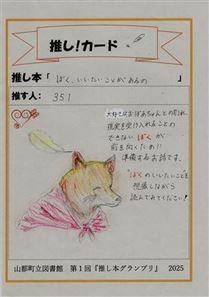 推し!カード
推し本「 ぼく、いいたいことがあるの 」
推す人: 351
大好きなおばあちゃんとの別れ。
現実を受け入れることの
できない ぼく が
前を向くために
準備するお話です。
ぼくのいいたいことを
想像しながら
読んでみてください!
山都町立図書館 第1回『推し本グランプリ』 2025